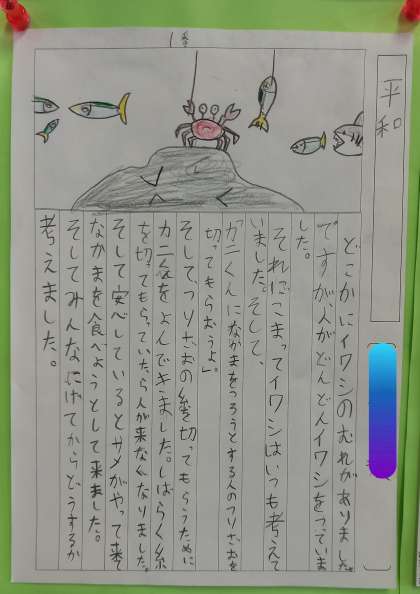 1番
平和
どこかにイワシのむれがありました。
ですが、人がどんどんイワシをつっていま
した。
それにこまってイワシはいつも考えて
いました。そして、
「カニくんになかまをつろうとする人のつりざおを
切ってもらおうよ」
そして、つりざおの糸を切ってもらうために
カニくんをよんできました。しばらく糸
を切ってもらっていたら人が来なくなりました。
そして安心しているとサメがやって来て
なかまを食べようとして来ました。
そしてみんなにげてからどうするか
考えました。